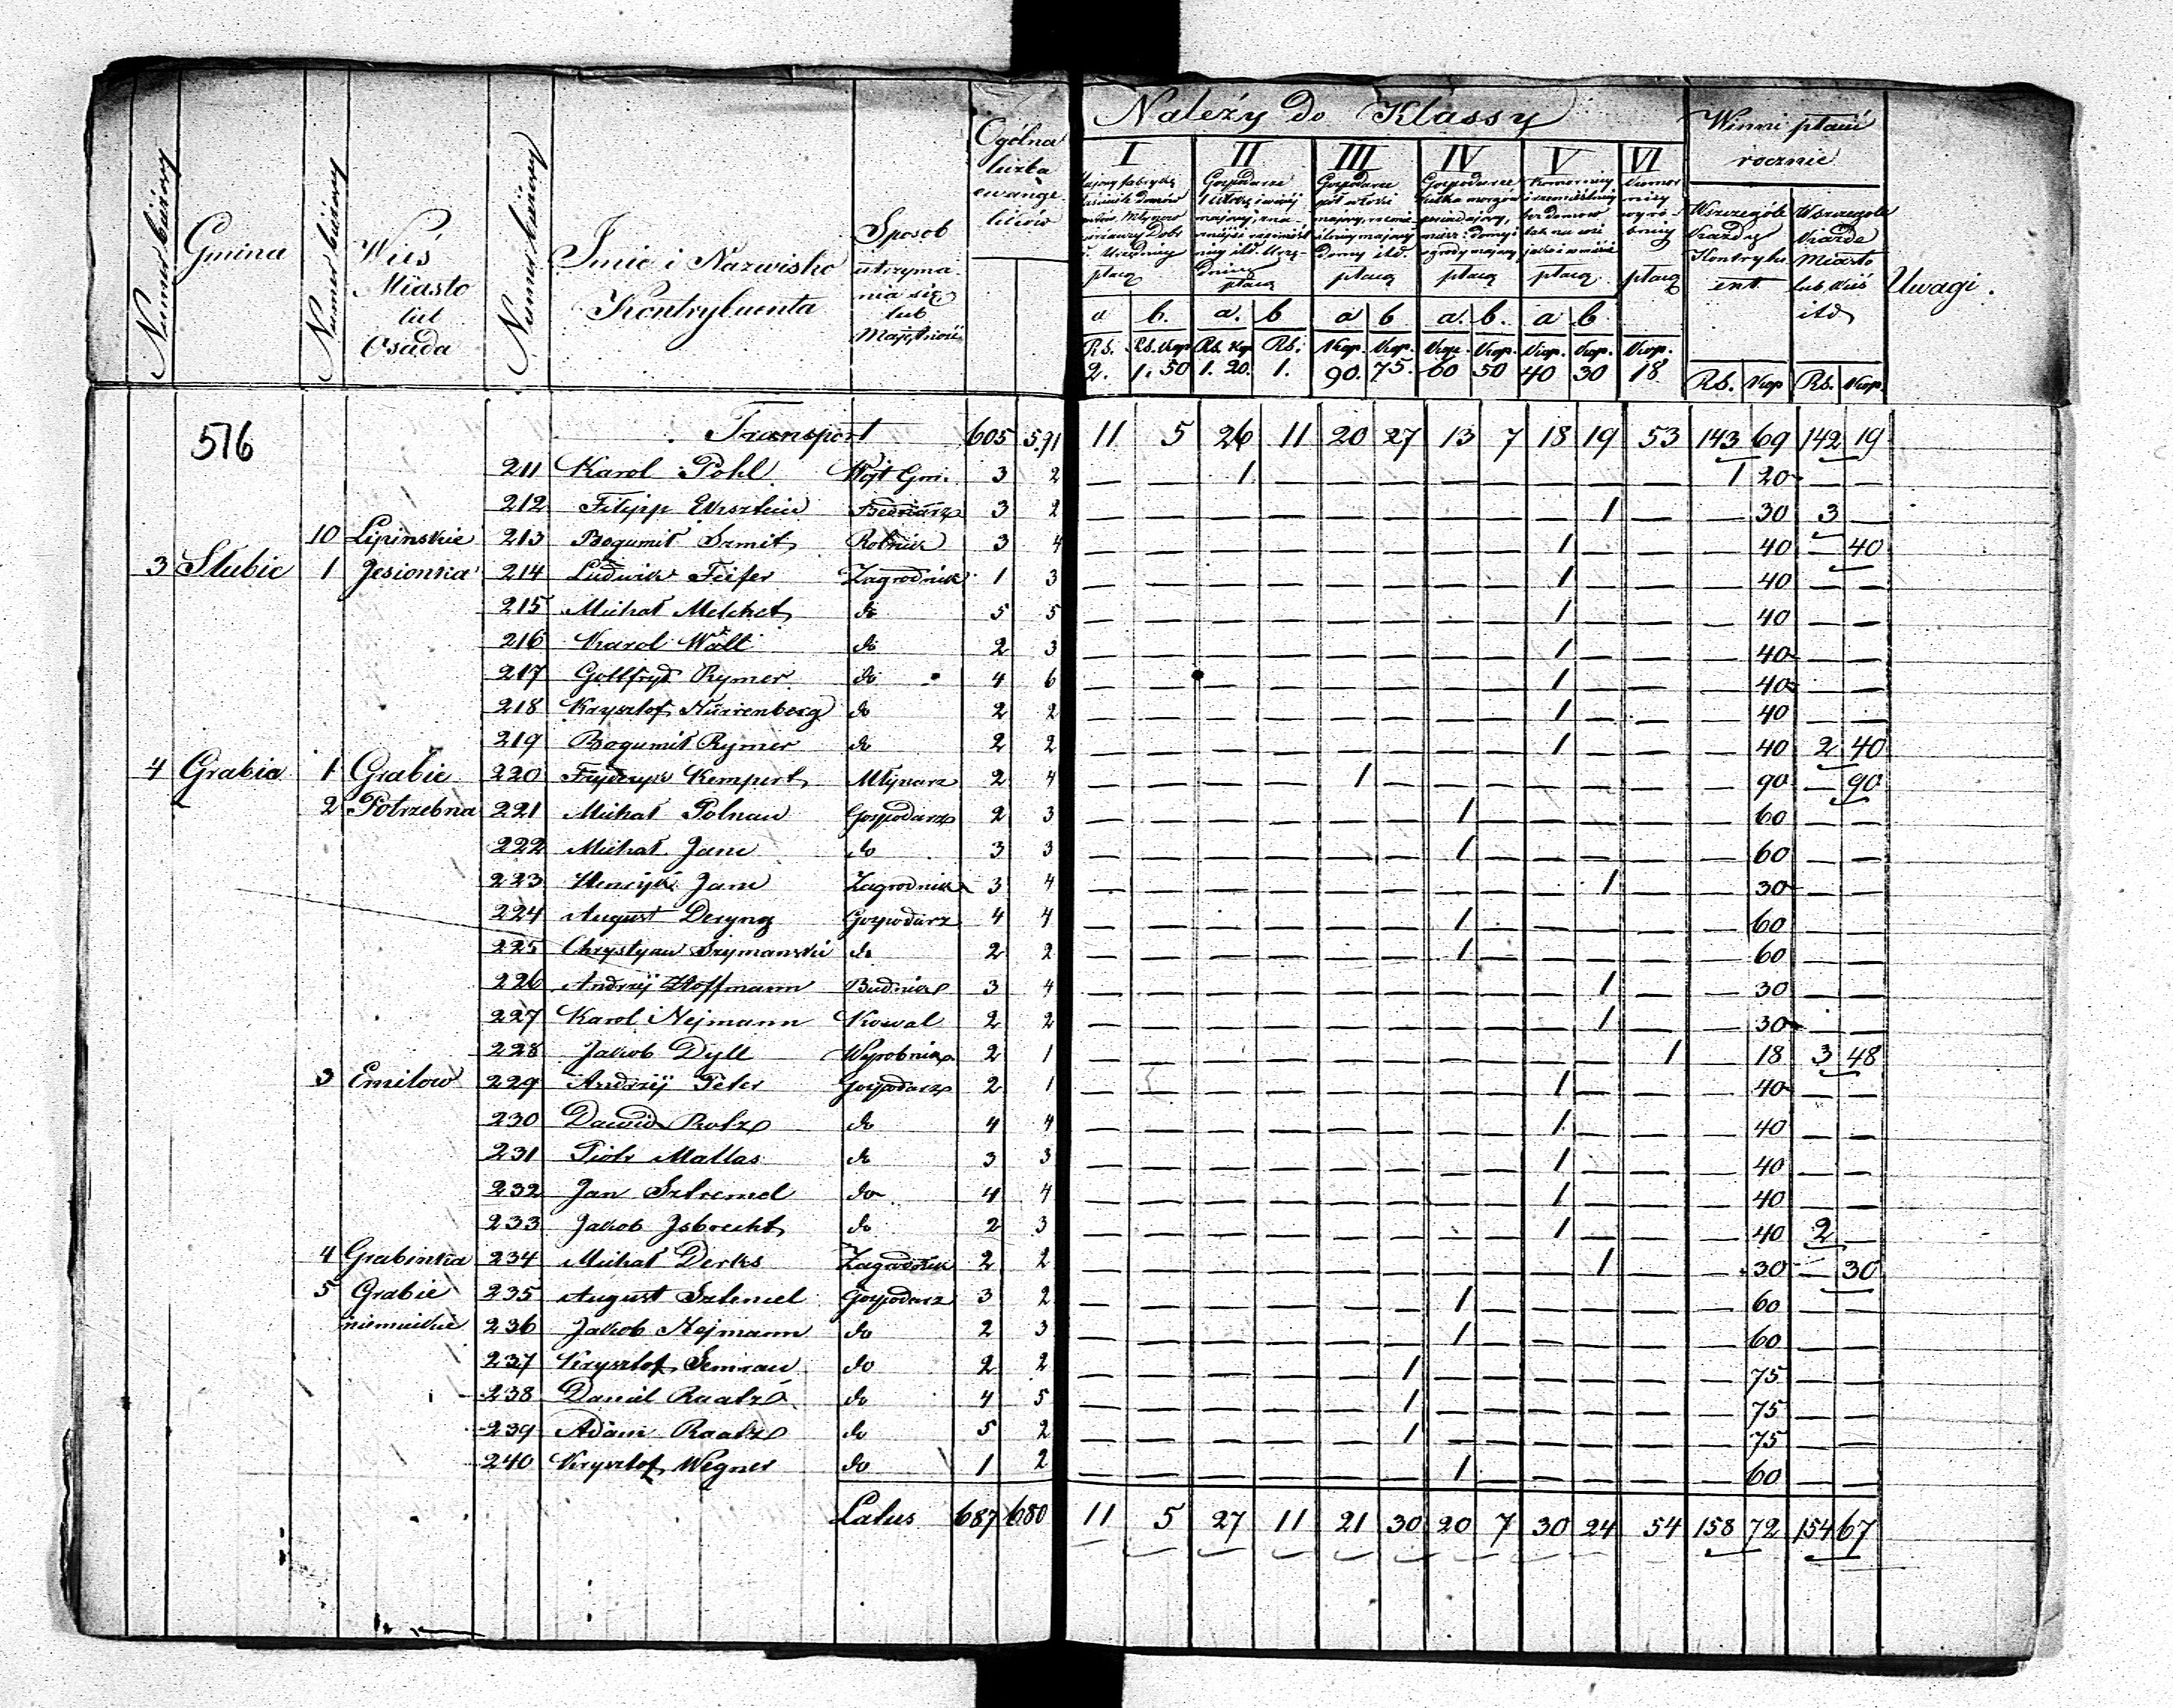 Numer bieżący
Gmina
Numer bieżący
Wieś
Miasto
lub
Osada
Numer bieżący
Imie i Nazwisko
Kontrybuenta
Sposob
utrzyma
nia się
lub
Majętność
Ogólna
liczba
ewange
lików
Należy do Klassy
I II III IV V VI
płacą płacą płacą płacą płacą płacą
a b. a. b a b a. b. a b
Rs. Rs. Kop Rs. Kop Rs. Kop. Kop. Kop. Kop. Kop. Kop. Kop.
2. 1. 50 1. 20. 1. 90. 75. 60 50 40 30 18.
Winni płacić
rocznie
Wszczególe
Każdy
Kontrybu
ent
Wszczególe
Każde
Miasto
lub Wieś
itd
Rs. Kop Rs. Kop.
Uwagi.
516 Transport 605 591 11 5 26 11 20 27 13 7 18 19 53 143 69 142 19
211 Karol Pohl Wójt Gmi. 3 2 — — 1 — — — — — — — — 1 20 — —
212 Filipp Ekrsztein Bednarz 3 2 — — — — — — — — — 1 — — 30 3 —
10 Lipinskie 213 Bogumił Szmit Rolnik 3 4 — — — — — — — — 1 — — — 40 — 40
3 Słubic 1 Jesionka 214 Ludwik Fiifer Zagrodnik 1 3 — — — — — — — — 1 — — — 40 — —
215 Michał Melchet do 5 5 — — — — — — — — 1 — — — 40 — —
216 Karol Walt do 2 3 — — — — — — — — 1 — — — 40 — —
217 Gottfryd Rymer do 4 6 — — — — — — — — 1 — — — 40 — —
218 Krysztof Nürrenberg do 2 2 — — — — — — — — 1 — — — 40 — —
219 Bogumił Rymer do 2 2 — — — — — — — — 1 — — — 40 2 40
4 Grabia 1 Grabie 220 Fryderyk Kempert Młynarz 2 4 — — — — 1 — — — — — — — 90 — 90
2 Potrzebna 221 Michał Polnau Gospodarz 2 3 — — — — — — 1 — — — — — 60 — —
222 Michał Janc do 3 3 — — — — — — 1 — — — — — 60 — —
223 Henryk Janc Zagrodnik 3 4 — — — — — — — — — 1 — — 30 — —
224 August Deryng Gospodarz 4 4 — — — — — — 1 — — — — — 60 — —
225 Chrystyan Szymanski do 2 2 — — — — — — 1 — — — — — 60 — —
226 Andrzij Hoffmann Budnik 3 4 — — — — — — — — — 1 — — 30 — —
227 Karol Nejmann Kowal 2 2 — — — — — — — — — 1 — — 30 — —
228 Jakob Dyll Wyrobnik 2 1 — — — — — — — — — — 1 — 18 3 48
3 Emilow 229 Andrzij Peter Gospodarz 2 1 — — — — — — — — 1 — — — 40 — —
230 Dawid Rotz do 4 4 — — — — — — — — 1 — — — 40 — —
231 Piotr Mallas do 3 3 — — — — — — — — 1 — — — 40 — —
232 Jan Sztremel do 4 4 — — — — — — — — 1 — — — 40 — —
233 Jakob Jsbrecht do 2 3 — — — — — — — — 1 — — — 40 2 —
4 Grabinka 234 Michał Derks Zagrodnik 2 2 — — — — — — — — — 1 — — 30 — 30
5 Grabie 235 August Sztemel Gospodarz 3 2 — — — — — — 1 — — — — — 60 — —
niemieckie 236 Jakob Nejmann do 2 3 — — — — — — 1 — — — — — 60 — —
237 Krysztof Semrau do 2 2 — — — — — 1 — — — — — — 75 — —
238 Daniel Raatz do 4 5 — — — — — 1 — — — — — — 75 — —
239 Adam Raatz do 5 2 — — — — — 1 — — — — — — 75 — —
240 Krysztof Wegner do 1 2 — — — — — — 1 — — — — — 60 — —
Latus 687 680 11 5 27 11 21 30 20 7 30 24 54 158 72 154 67